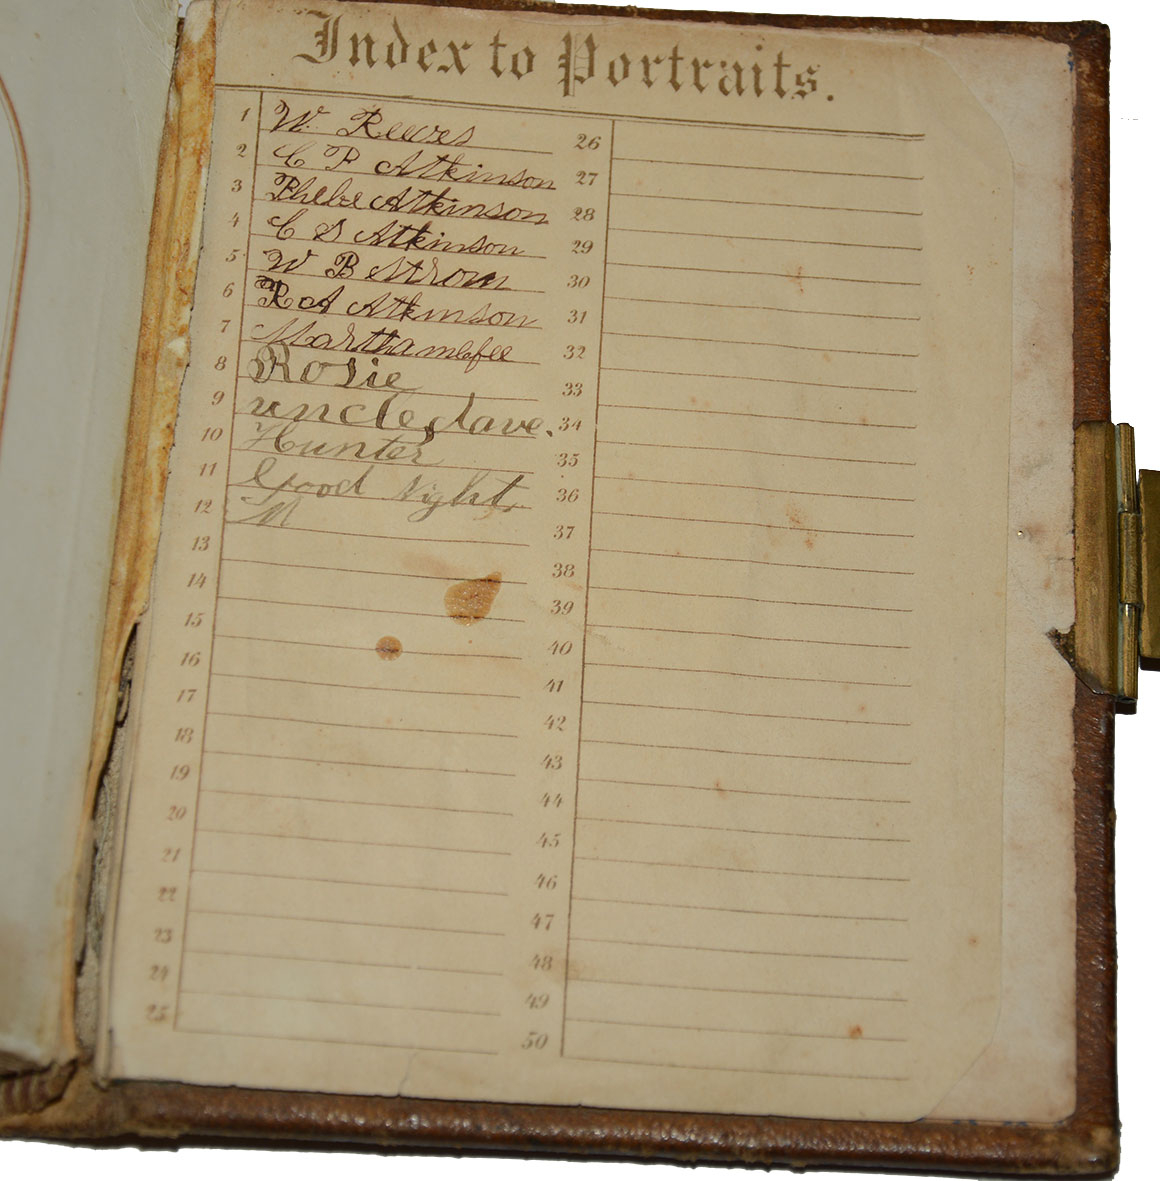 Index to Portraits.
1 W. Reeves
2 C P Atkinson
3 Phebe Atkinson
4 C S Atkinson
5 W B Strom
6 R A Atkinson
7 Martha
8 Rosie
9 uncle dave.
10 Hunter
11 Good Night
12 M
13
14
15
16
17
18
19
20
21
22
23
24
25
26
27
28
29
30
31
32
33
34
35
36
37
38
39
40
41
42
43
44
45
46
47
48
49
50